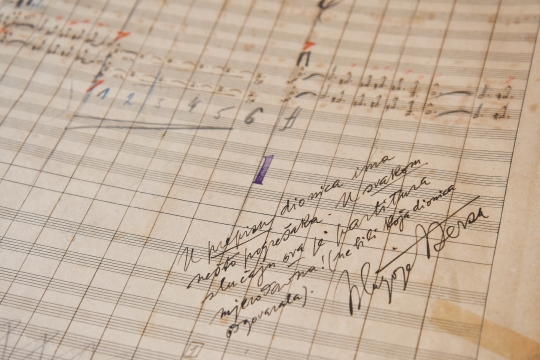 1 2 3 4 5 6 7
I
U prepisu dionica ima
nešto pogrešaka. U svakom
slučaju ova je partitura
mjerodavna! (ne bili koja dionica
odgovarala).
Blagoje Bersa